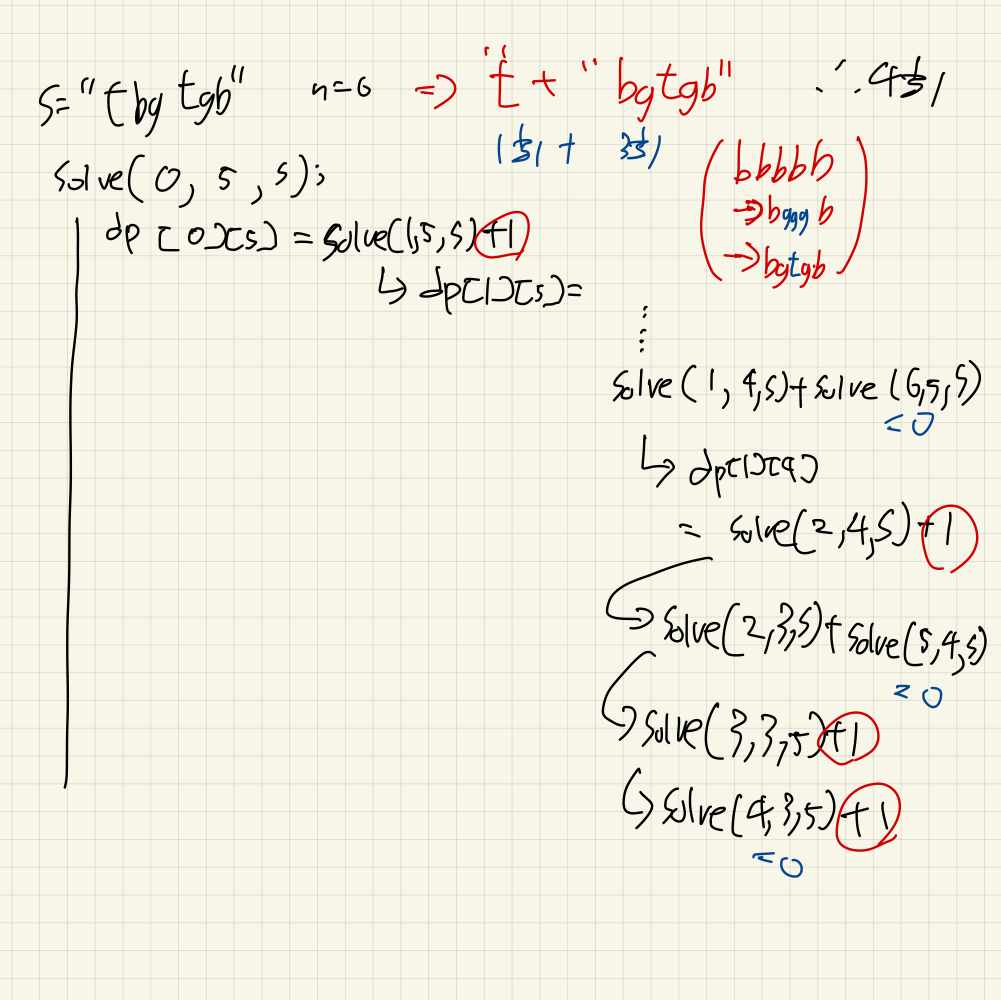 S="tbgtgb" n=6 ⇒ "t"+"bgtgb" ∴4번
1번 + 3번
solve(0, 5, s);
(bbbbb
→bgggb
→bgtgb)
dp[0][5] = solve(1,5,s)+1
↳ dp[1][5]=
solve(1,4,s)+solve(6,5,s)
=0
↳ dp[1][4]
= solve(2,4,s)+1
→solve(2,3,s)+solve(5,4,s)
=0
→solve(3,3,s)+1
↳solve(4,3,s)+1
=0